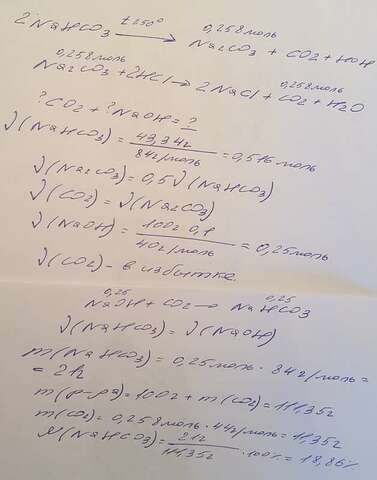 2NaHCO3 t 250° → 0,258моль Na2CO3 + CO2 + HOH
0,258моль Na2CO3 + 2HCl → 2NaCl + 0,258моль CO2 + H2O
?CO2 + ?NaOH = ?
ν(NaHCO3) = 43,34г / 84г/моль = 0,516 моль
ν(Na2CO3) = 0,5ν(NaHCO3)
ν(CO2) = ν(Na2CO3)
ν(NaOH) = 100г·0,1 / 40г/моль = 0,25моль
ν(CO2) - в избытке.
0,25 NaOH + CO2 → 0,25 NaHCO3
ν(NaHCO3) = ν(NaOH)
m(NaHCO3) = 0,25моль · 84г/моль =
= 21г
m(р-ра) = 100г + m(CO2) = 111,35г
m(CO2) = 0,258моль · 44г/моль = 11,35г
W(NaHCO3) = 21г / 111,35г · 100% = 18,86%